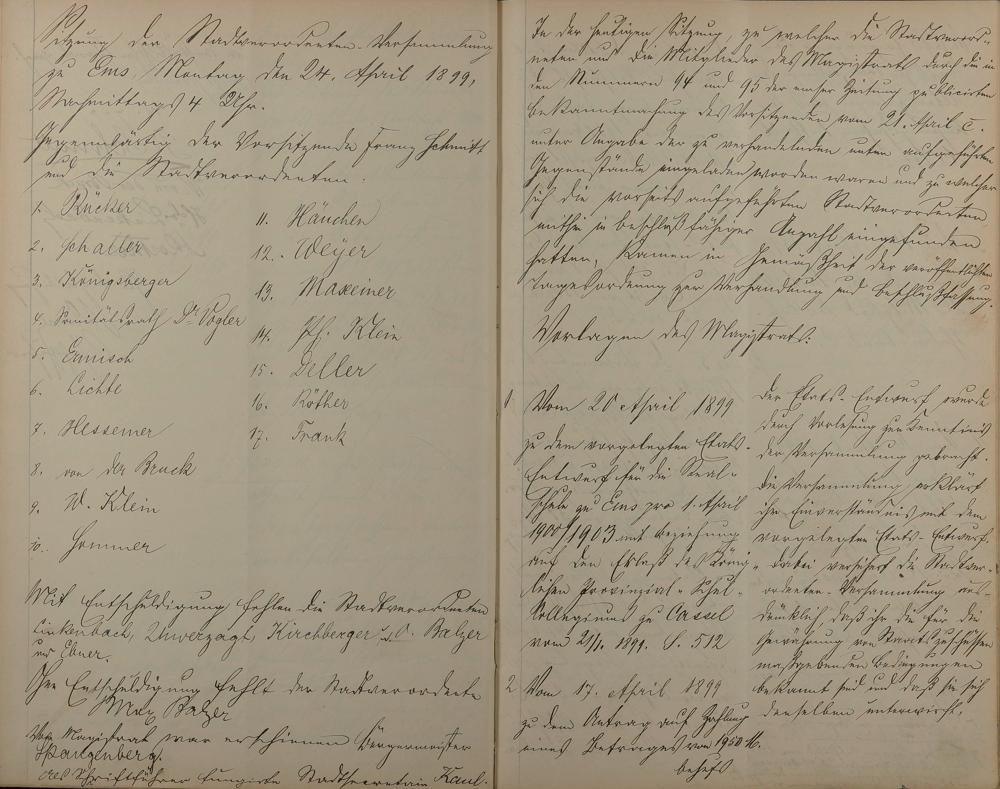 Sitzung der Stadtverordneten-Versammlung
zu Ems, Montag den 24. April 1899,
Nachmittags 4 Uhr.
Gegenwärtig der Vorsitzende Franz Schmitt
und die Stadtverordneten.
1. Rücker
2. Schaller
3. Königsberger
4. Sanitätsrath Dr. Vogler
5. Ermisch
6. Lichte
7. Hessemer
8. von der Bruck
9. W. Klein
10. Hommer
11. Häuchen
12. Weyer
13. Maxeiner
14. Ph. Klein
15. Deller
16. Röther
17. Frank
Mit Entschuldigung fehlen die Stadtverordneten
Linkenbach, Unverzagt, Kirchberger u. O. Balzer
und Ebner.
Ohne Entschuldigung fehlt der Stadtverordnete
Max Balzer
Vom Magistrat war erschienen Bürgermeister
Spangenberg.
Als Schriftführer fungirte Stadtsecretair Kaul.
In der heutigen Sitzung, zu welcher die Stadtverord-
neten und die Mitglieder des Magistrats durch die in
den Nummern 94 und 95 der Emser Zeitung publicirten
Bekanntmachung des Vorsitzenden vom 21. April c.
unter Angabe der zu verhandelnden unten aufgeführten
Gegenstände eingeladen worden waren und zu welcher
sich die vorseits aufgeführten Stadtverordneten
mithin in beschlußfähiger Anzahl eingefunden
hatten, kamen in Gemäßheit der veröffentlichten
Tagesordnung zur Verhandlung und Beschlußfassung.
Vorlagen des Magistrats:
1 Vom 20 April 1899
zu dem vorgelegten Etats-
Entwurf für die Real-
Schule zu Ems pro 1. April
1900/1903 mit Beziehung
auf den Erlaß des König-
lichen Provinzial-Schul-
Kollegiums zu Cassel
vom 21/1. 1899. S. 512
Der Etats-Entwurf wurde
durch Vorlesung zur Kenntniß
der Versammlung gebracht.
Die Versammlung erklärt
ihr Einverständniß mit dem
vorgelegten Etats-Entwurf.
Dabei versichert die Stadtver-
ordneten-Versammlung aus-
drücklich, daß ihr die für die
Gewährung von Staatszuschüssen
maßgebenden Bedingungen
bekannt sind und daß sie sich
denselben unterwirft.
2 Vom 17. April 1899
zu dem Antrag auf Zahlung
eines Betrages von 1950 M.
behufs